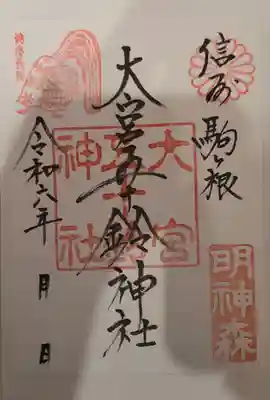 信州 駒ヶ根
大宮五十鈴神社
大宮
五十鈴
神社
明神森
令和六年 月 日